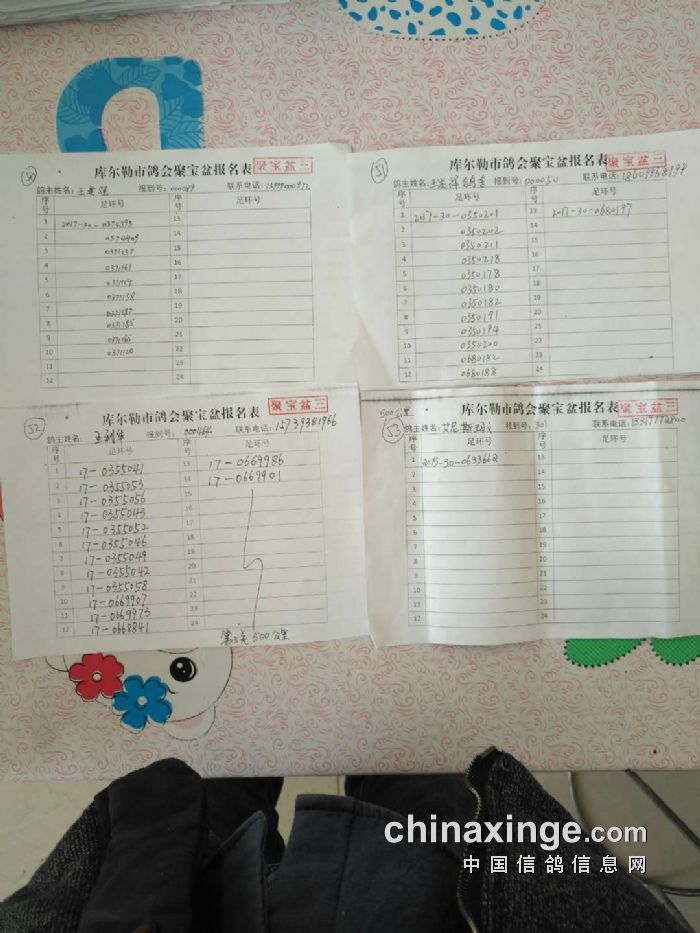 50
库尔勒市鸽会聚宝盆报名表 聚宝盆三
鸽主姓名: 报到号: 000049 联系电话:
序号 足环号 序号 足环号
1 2017-30-0374393 13
2 0374409 14
3 15
4 0371161 16
5 17
6 0371158 18
7 19
8 0371185 20
9 21
10 0371120 22
11 23
12 24
51
库尔勒市鸽会聚宝盆报名表 聚宝盆三
鸽主姓名: 报到号: 000050 联系电话:
序号 足环号 序号 足环号
1 2017-30-0350201 13 2017-30-0680197
2 0350202 14
3 0350211 15
4 0350218 16
5 0350178 17
6 0350180 18
7 0350182 19
8 0350191 20
9 0350194 21
10 0350200 22
11 0680182 23
12 0680188 24
52
库尔勒市鸽会聚宝盆报名表 聚宝盆三
鸽主姓名: 报到号: 联系电话: 15739381966
序号 足环号 序号 足环号
1 17-0355041 13 17-0669986
2 17-0355053 14 17-0669901
3 17-0355056 15
4 17-0355043 16
5 17-0355052 17
6 17-0355046 18
7 17-0355049 19
8 17-0355042 20
9 17-0355058 21
10 17-0669907 22
11 17-0669973 23
12 17-0668841 24
第三关 500公里
500公里
53
库尔勒市鸽会聚宝盆报名表 聚宝盆三
鸽主姓名: 艾尼·斯玛义 报到号: 301 联系电话:
序号 足环号 序号 足环号
1 2015-30-0633662 13
2 14
3 15
4 16
5 17
6 18
7 19
8 20
9 21
10 22
11 23
12 24
chinaxinge.com
中国信鸽信息网